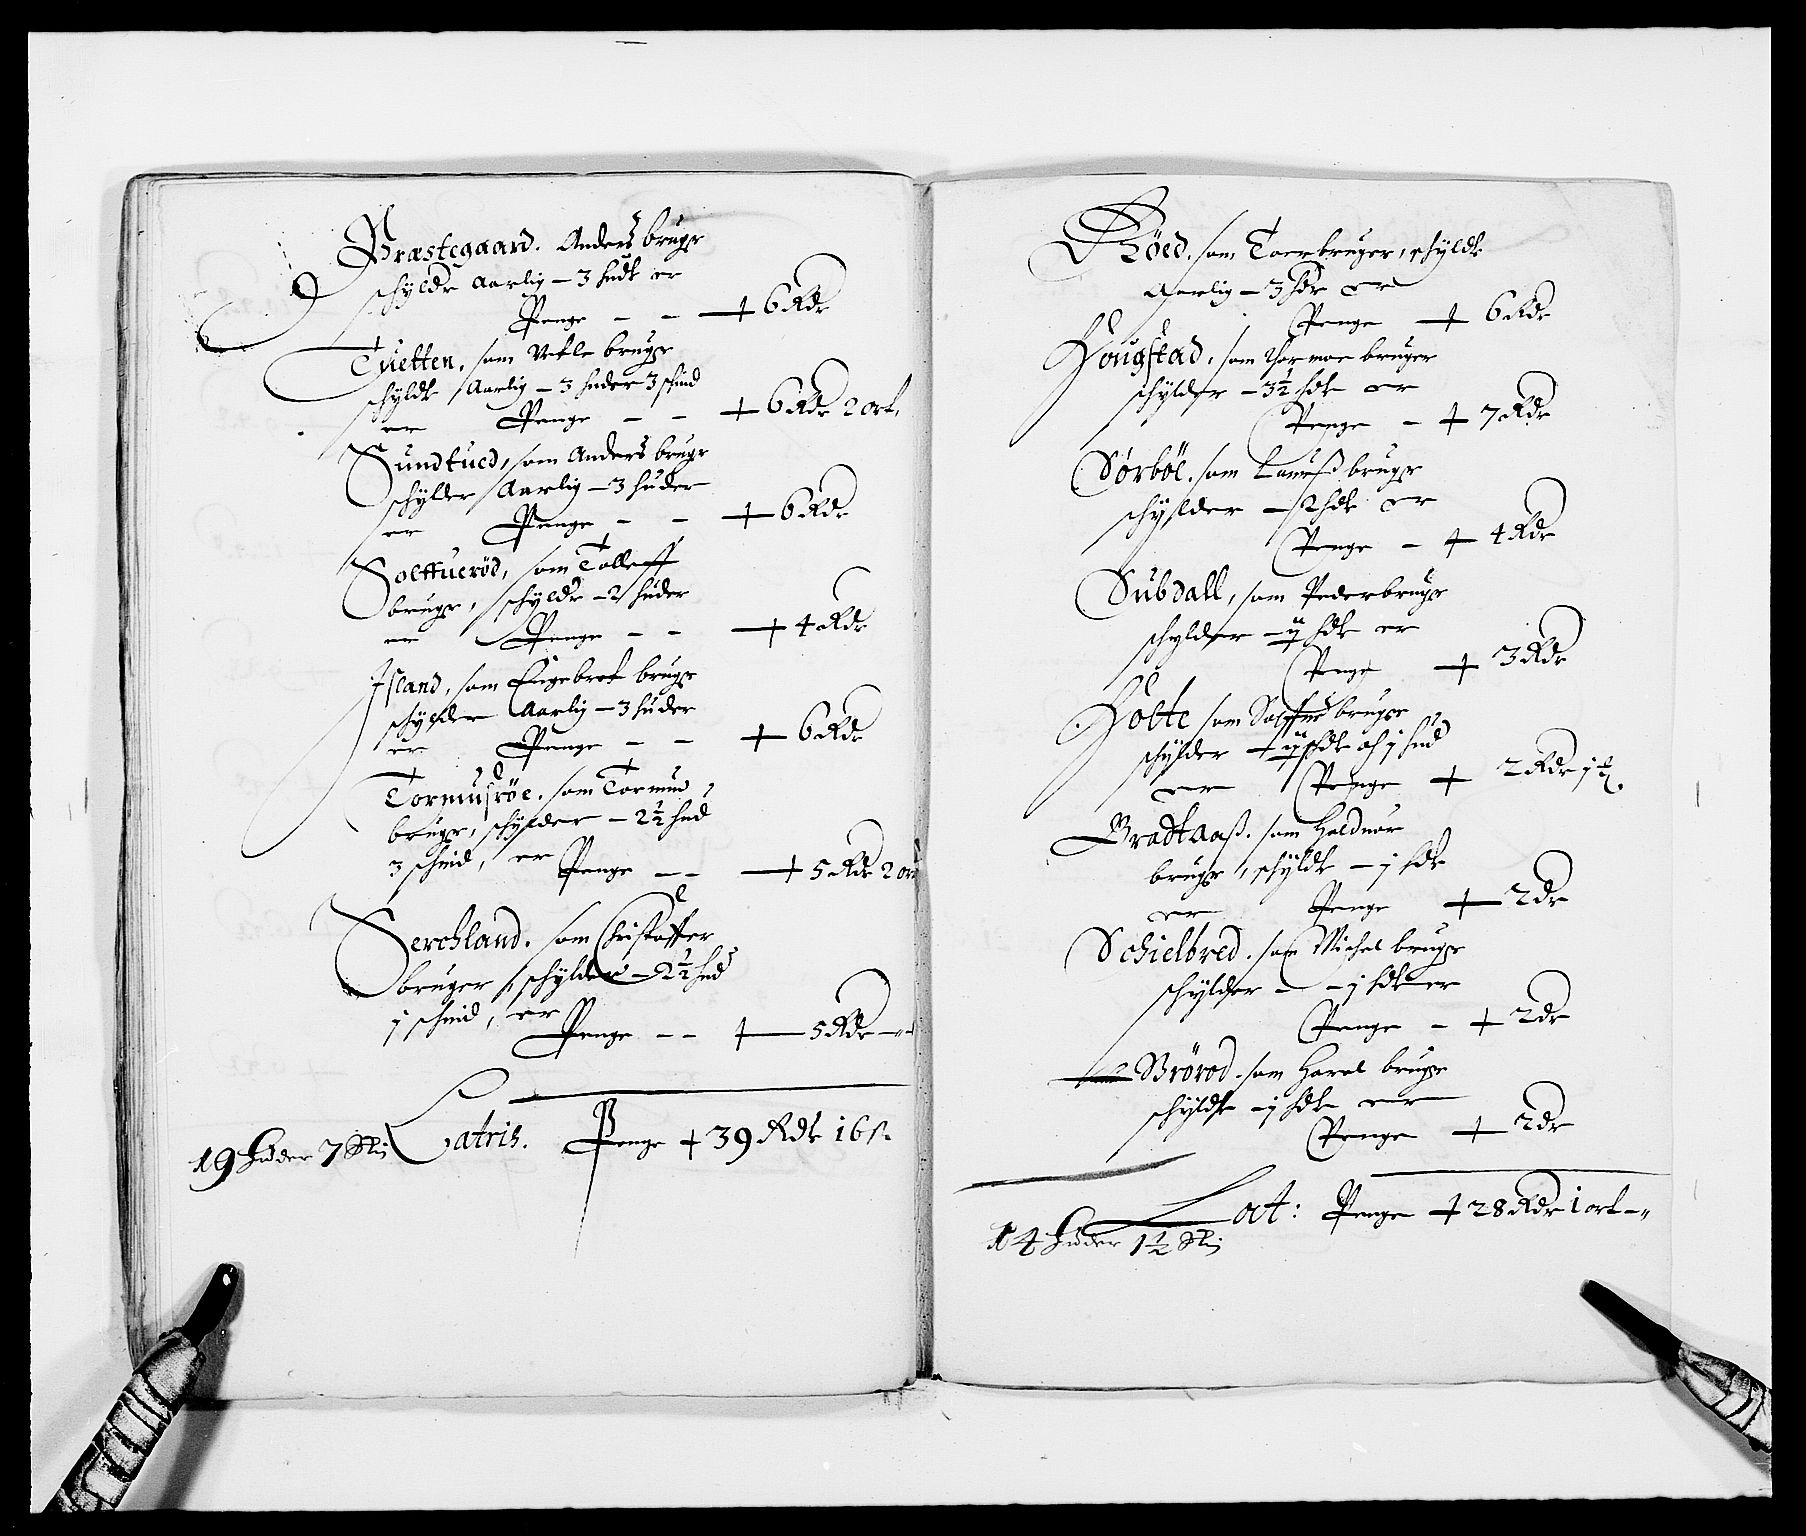 Præstegaard. Anders bruger
schylder Aarlig – 3 hudr er
Penge – – + 6 Rdr
Tuetten, som Vetle bruger
schylder Aarlig – 3 huder 3 schind
er Penge – – + 6 Rdr 2 ort.
Sundtued, som Anders bruger
schylder Aarlig – 3 huder
er Penge – – + 6 Rdr
Solffueröd, som Tolleff
bruger, schylder – 2 huder
er Penge – – + 4 Rdr
Jsland, som Engebret bruger
schylder Aarlig – 3 huder
er Penge – – + 6 Rdr
Tormusröe. som Tormud
bruger, schylder – 2½ hud
3 schind, er Penge – – + 5 Rdr 2 ort
Serchland. som Christoffer
bruger, schylder – 2½ hud
j schind, er
Penge – – + 5 Rdr – „
Latris. Penge + 39 Rdr 16 s.
19 Huder 7 Ski
Röed. som Toer bruger, schylder
Aarlig – 3 hdr er
Penge + 6 Rdr
Hougstad, som Thormoe bruger
schylder – 3½ hdr er
Penge – + 7 Rdr
Sörböe. som Lauriß bruger
schylder – 2 hdr er
Penge – + 4 Rdr
Subdall, som Peder bruger
schylder – hdr er
Penge + 3 Rdr
Holte som bruger
schylder – hdr och j hud
er Penge + 2 Rdr j ½
Bradtaaß. som Halduor
bruger, schylder – j hdr
er Penge + 2 dr
Schielbred. som Michel bruger
schylder – – j hdr er
Penge – + 2 dr
Bröröd. som Harel bruger
schylder – j hdr er
Penge + 2 dr
Lat: Penge + 28 Rdr 1 ort – „
14 Huder 1½ Ski